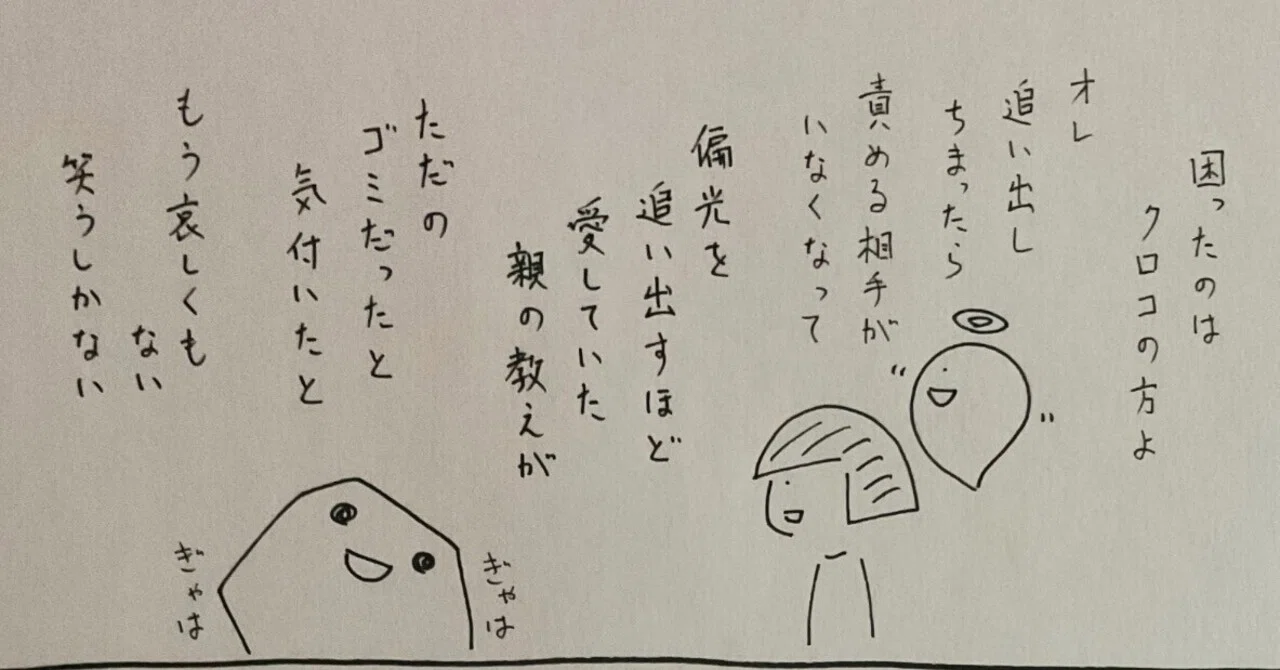 困ったのは
クロコの方よ
オレ
追い出し
ちまったら
責める相手が
いなくなって
偏光を
追い出すほど
愛していた
親の教えが
ただの
ゴミだったと
気付いたと
もう哀しくも
ない
笑うしかない
ぎゃは
ぎゃは